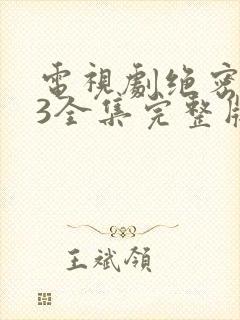 電視劇绝密
3全集完整版
王斌領